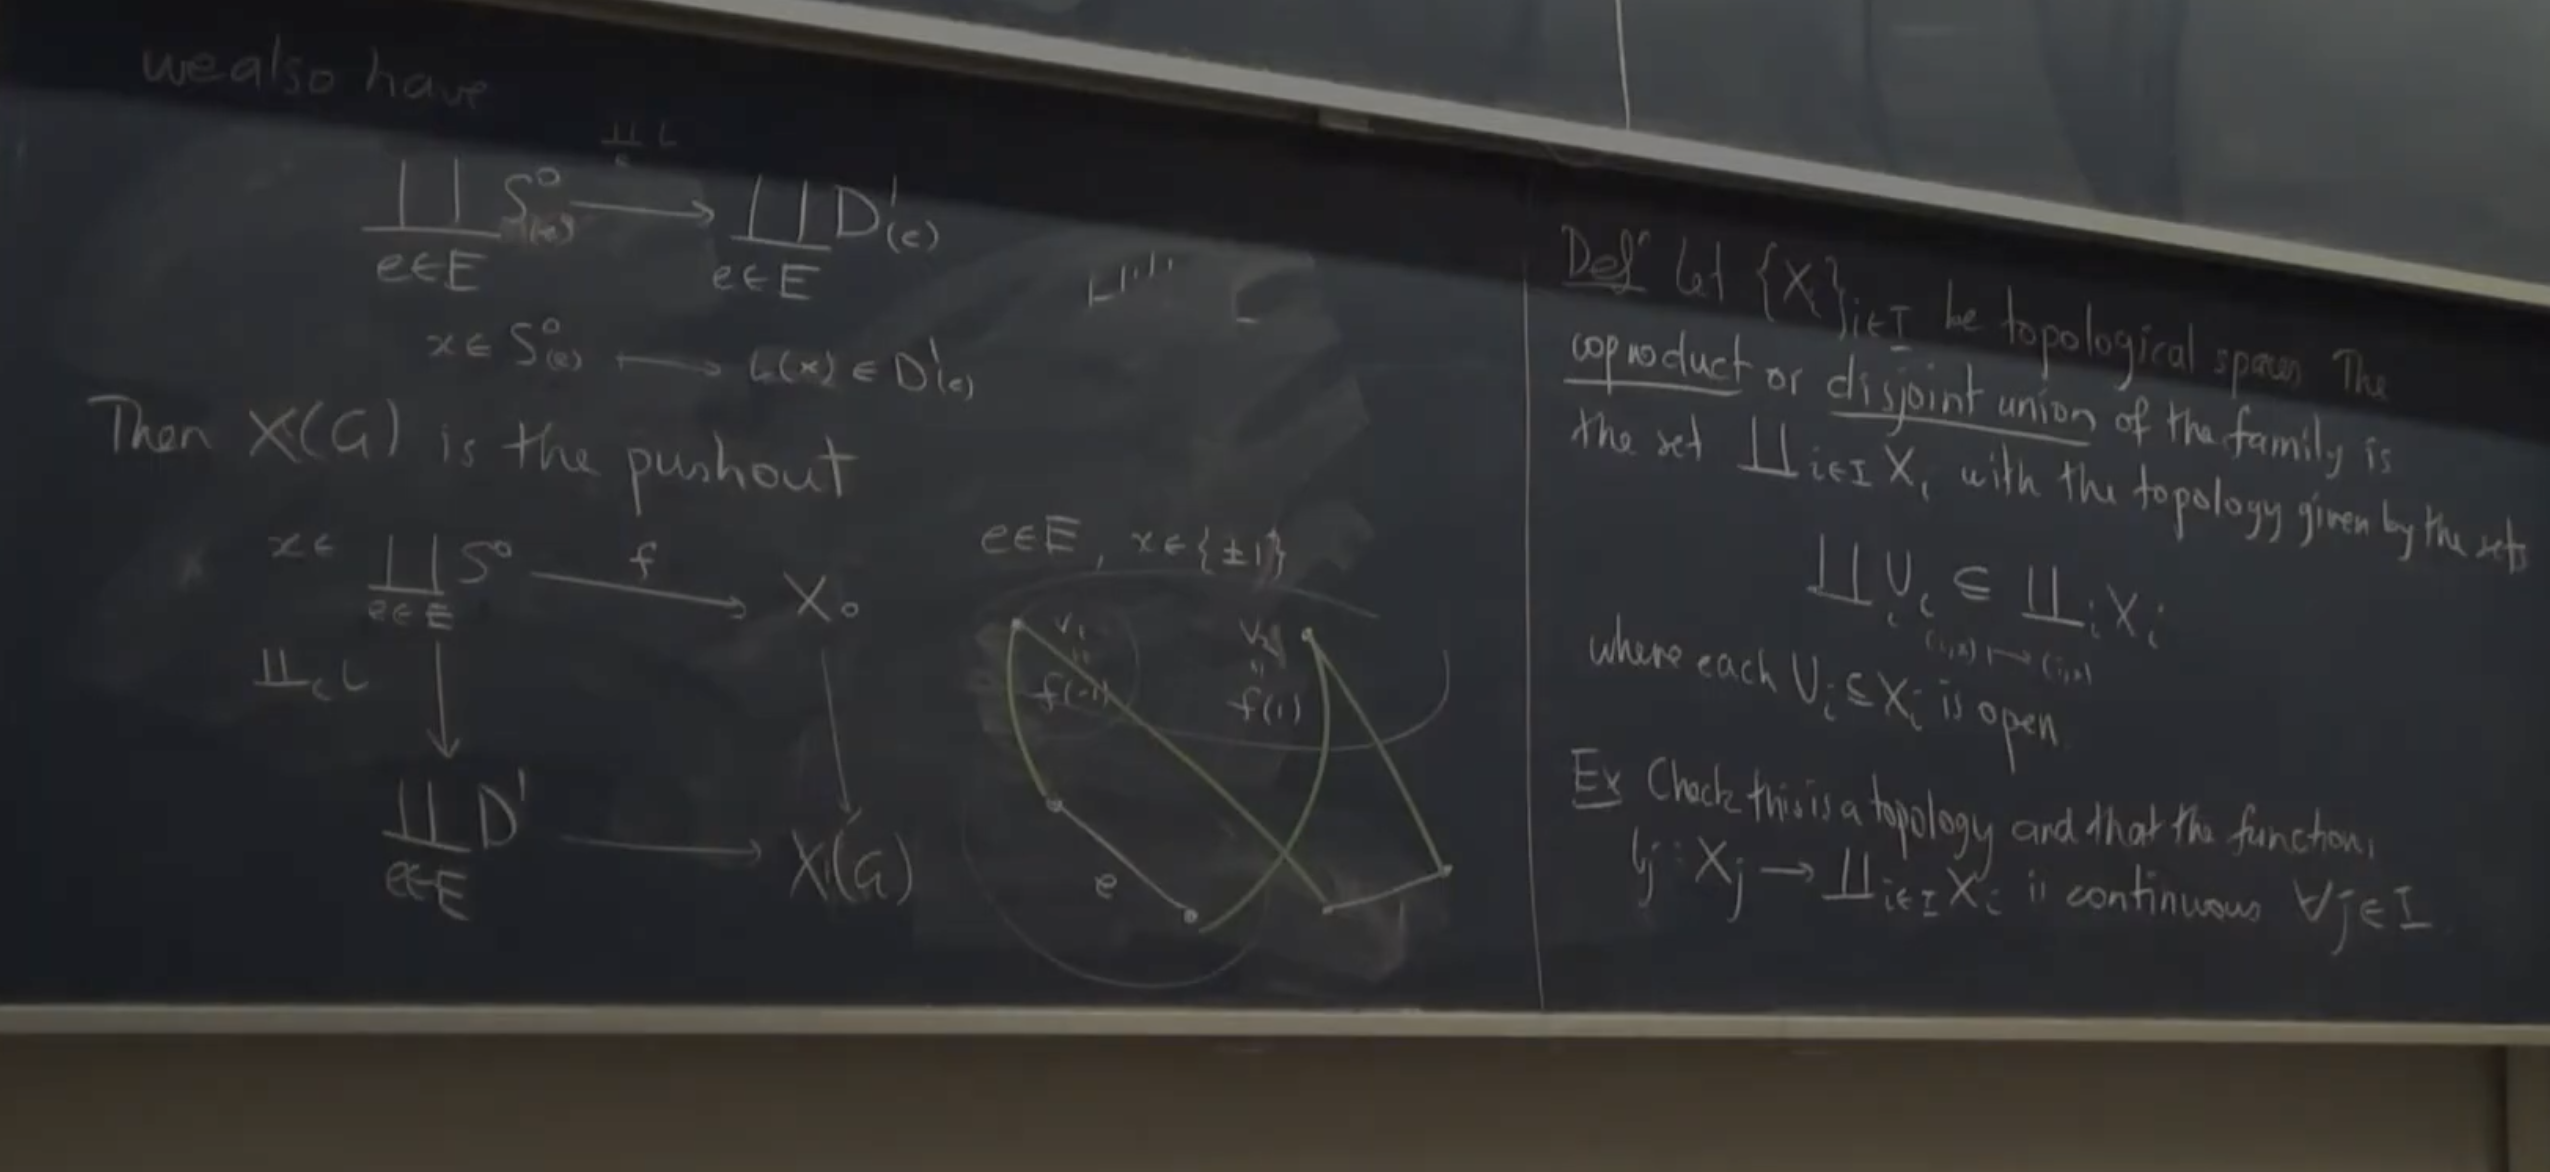 we also have
∐_e ι
∐_{e∈E} S⁰_(e) ⟶ ∐_{e∈E} D¹_(e)
x ∈ S⁰_(e) ⟼ ι(x) ∈ D¹_(e)
Then X(G) is the pushout
x ∈ ∐_{e∈E} S⁰ ⟶ X₀
f
∐_e ι
∐_{e∈E} D¹ ⟶ X(G)
e∈E, x∈{±1}
v₁ v₂
= =
f(-1) f(1)
e
Defⁿ Let {X_i}_{i∈I} be topological spaces The
coproduct or disjoint union of the family is
the set ∐_{i∈I} X_i with the topology given by the sets
∐_i U_i ⊆ ∐_i X_i
(i,x) ↦ (i,x)
where each U_i ⊆ X_i is open
Ex Check this is a topology and that the function
ι_j : X_j → ∐_{i∈I} X_i is continuous ∀j∈I